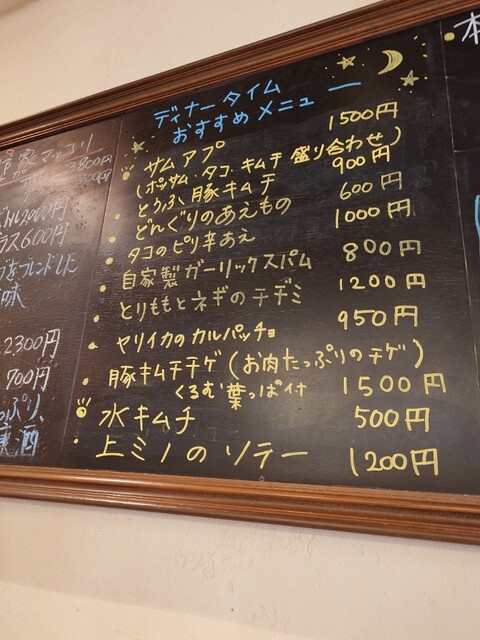 ディナータイム
おすすめメニュー
サムアプ 1500円
(ポッサム・タコ・キムチ 盛り合わせ)
とうふ豚キムチ 900円
どんぐりのあえもの 600円
タコのピリ辛あえ 1000円
自家製ガーリックスパム 800円
とりももとネギのチヂミ 1200円
ヤリイカのカルパッチョ 950円
豚キムチチゲ(お肉たっぷりのチゲ)
くるむ葉っぱ付 1500円
水キムチ 500円
上ミノのソテー 1200円
マッコリ
800円
2,000円
ラス600円
をブレンドした
味
2300円
700円
っぷり、
酒